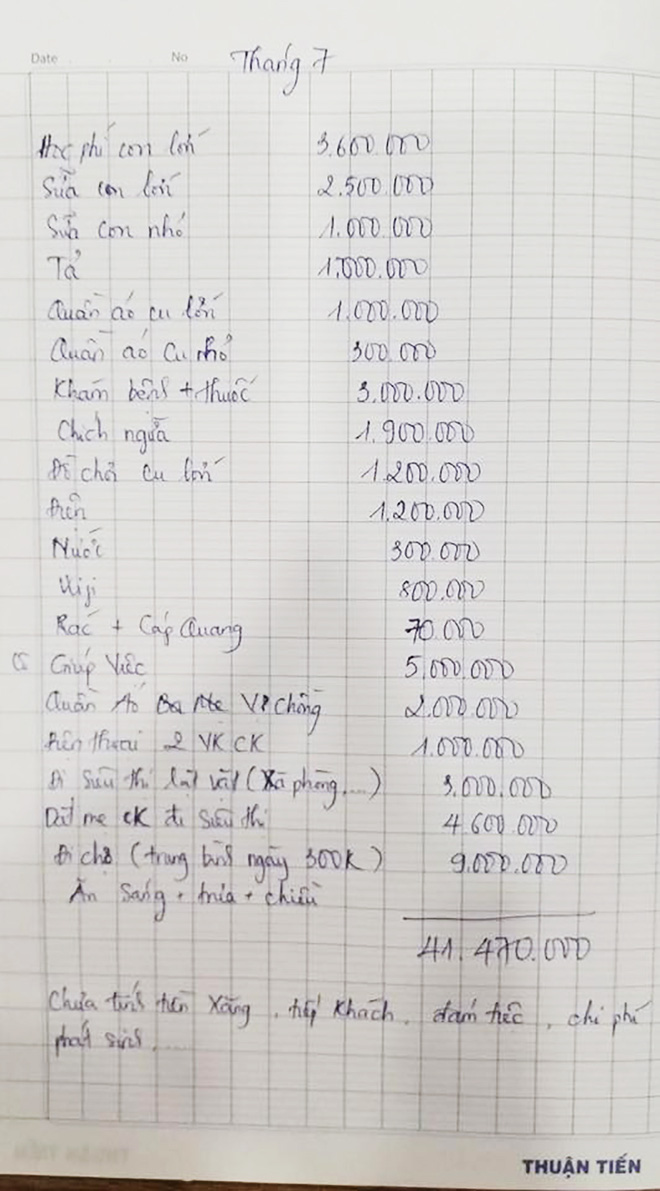 Date No Tháng 7
Học phí con lớn 3.600.000
Sữa con lớn 2.500.000
Sữa con nhỏ 1.000.000
Tả 1.000.000
Quần áo cu lớn 1.000.000
Quần áo cu nhỏ 300.000
Khám bệnh + thuốc 3.000.000
Chích ngừa 1.900.000
Đồ chơi cu lớn 1.200.000
Điện 1.200.000
Nước 300.000
800.000
Rác + Cáp Quang 70.000
Giúp Việc 5.000.000
Quần Áo Ba Mẹ Vợ Chồng 2.000.000
Điện thoại 2 VK CK 1.000.000
Đi siêu thị lặt vặt (Xà phòng....) 3.000.000
Dắt mẹ CK đi siêu thị 4.600.000
Đi chợ (trung bình ngày 300K) 9.000.000
Ăn sáng + trưa + chiều
41.470.000
Chưa tính tiền Xăng, tiếp Khách, đám tiệc, chi phí
phát sinh.....
THUẬN TIẾN